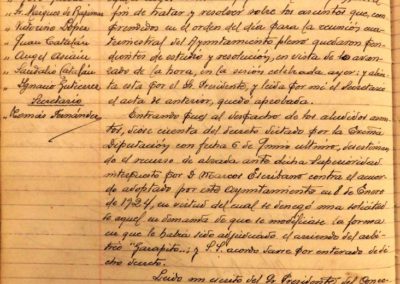 " Sr. Marques de
" Victorino López
" Juan Catalán
" Angel
"
" Ignacio Gutierrez
Secretario
Tomás Fernández
fin de tratar y resolver sobre los asuntos que, com-
prendidos en el orden del día para la reunión cua-
trimestral del Ayuntamiento pleno quedaron pen-
dientes de estudio y resolución, en vista de lo avan-
zado de la hora, en la sesión celebrada ayer; y abier-
ta esta por el Sr. Presidente, y leida por mi el Secretario
el acta de anterior, quedó aprobada.
Entrando pues al despacho de los aludidos asun-
tos, dióse cuenta del decreto dictado por la Excma
Diputación con fecha 6 de Junio ultimo, desestiman-
do el recurso de alzada ante dicha Superioridad
interpuesto por D. Marcos Escribano contra el acuer-
do adoptado por este ayuntamiento en 8 de Enero
de 1924, en virtud del cual se denegó una solicitud
de aquel en demanda de que se modificase la forma
en que le habia sido adjudicado el arriendo del arbi-
trio "Garapito", y S.S. acordó darse por enterado de di-
cho decreto.
Leido un escrito del Sr. Presidente del